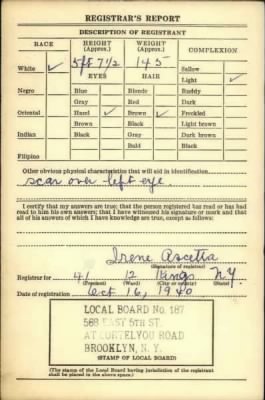 REGISTRAR'S REPORT
DESCRIPTION OF REGISTRANT
RACE HEIGHT (Approx.) WEIGHT (Approx.) COMPLEXION
White ✓ 5 ft 7 1/2 145 Sallow
EYES HAIR Light ✓
Negro Blue Blonde Ruddy
Gray Red Dark
Oriental Hazel ✓ Brown ✓ Freckled
Brown Black Light brown
Indian Black Gray Dark brown
Bald Black
Filipino
Other obvious physical characteristics that will aid in identification
scar over left eye
I certify that my answers are true; that the person registered has read or has had
read to him his own answers; that I have witnessed his signature or mark and that
all of his answers of which I have knowledge are true, except as follows:
Irene Ascetta
(Signature of registrar)
Registrar for 41 12 Kings N.Y.
(Precinct) (Ward) (City or county) (State)
Date of registration Oct 16, 1940
LOCAL BOARD No. 187
568 EAST 5TH ST.
AT CORTELYOU ROAD
BROOKLYN, N. Y.
(STAMP OF LOCAL BOARD)
(The stamp of the Local Board having jurisdiction of the registrant
shall be placed in the above space.)